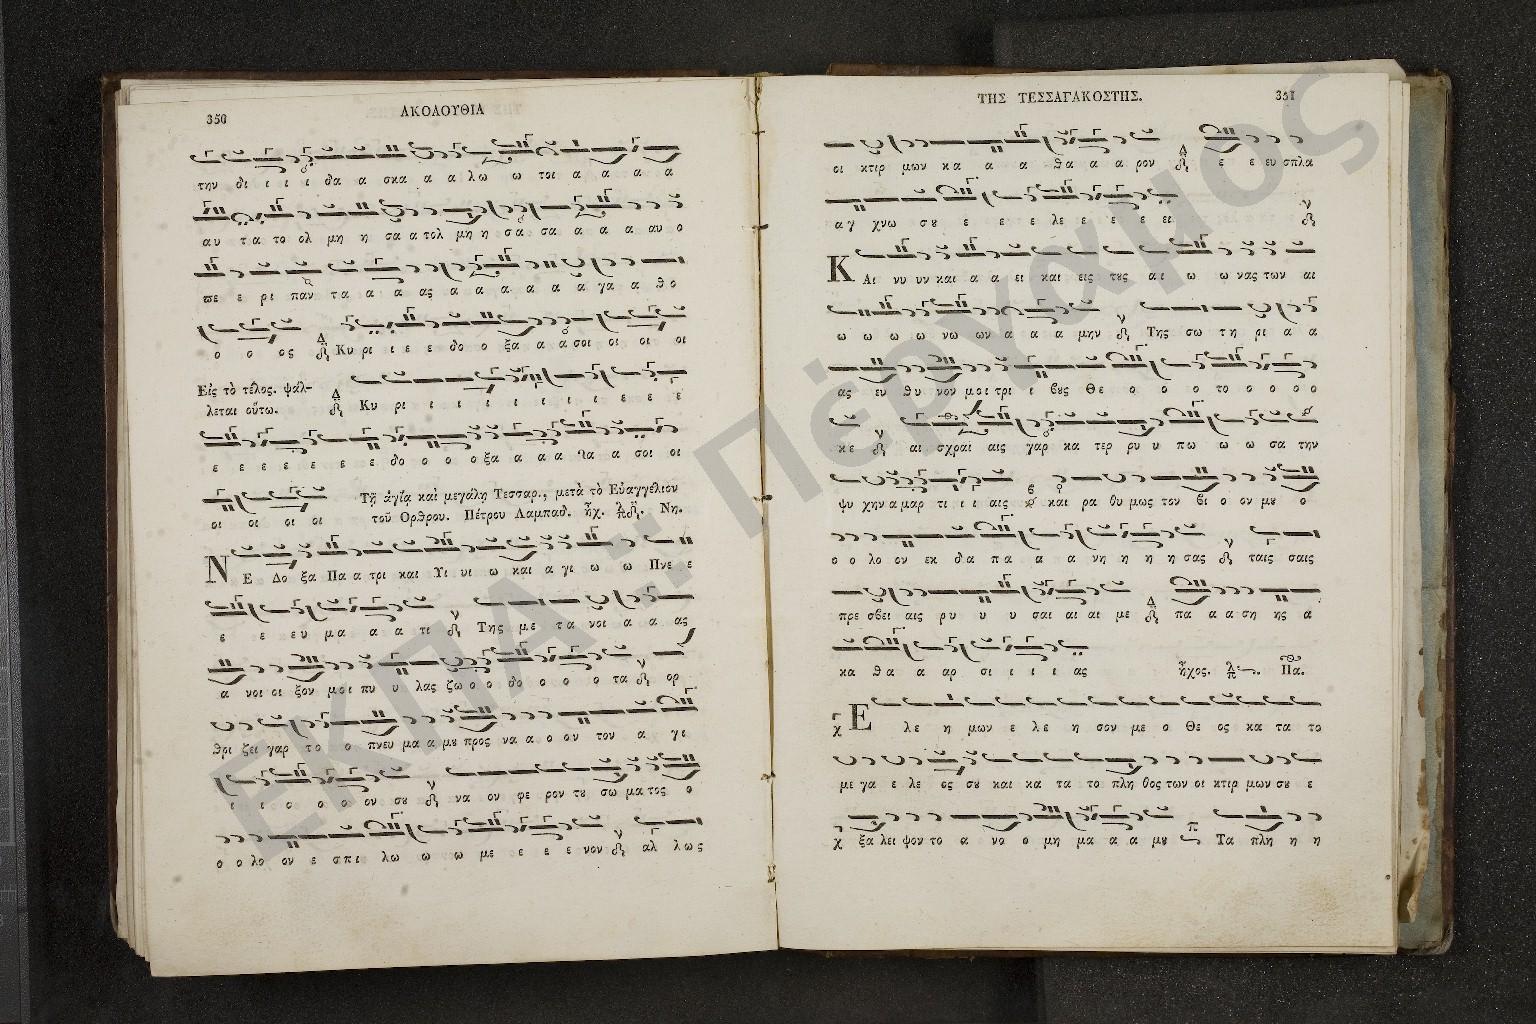 350
ΑΚΟΛΟΥΘΙΑ
την δι ι ι ι δα α σκα α α λω ω τοι α α α α
αυ τα το ολ μη η σα α τολ μη η σα σα α α α αυ ο
πε ε ρι παν τα α α ας α α α α α α γα α θο
ο ο ος Κυ ρι ι ε ε δο ο ξα α α σοι οι οι οι
Εἰς τὸ τέλος. ψάλ-
λεται οὕτω.
Κυ ρι ι ι ι ι ι ι ε ε ε
ε ε ε ε ε ε ε δο ο ο ο ξα α α α α α σοι οι
οι οι οι οι
Τῇ ἁγίᾳ καὶ μεγάλη Τεσσαρ., μετὰ τὸ Εὐαγγέλιον
τοῦ Ορθρου. Πέτρου Λαμπαδ. ἦχ. Νη.
Ν Ε Δο ξα Πα α τρι και Υι υι ω και α γι ω ω Πνε ε
ε ε ευ μα α α τι Της με τα νοι α α ας
α νοι οι ξον μοι πυ υ λας ζω ο ο δο ο ο ο τα ορ
θρι ζει γαρ το ο πνευ μα α μου προς να α ο ον τον α γι
ι ι ο ο ο ον σου να ον φε ρον του σω μα τος ο
ο ο λο ον ε σπι λω ω ω με ε ε ε νον αλ λως
ΤΗΣ ΤΕΣΣΑΓΑΚΟΣΤΗΣ.
351
οι κτιρ μων κα α α θα α α ρον ε ε ευ σπλα
α γ χνω σου ε ε ε λε ε ε ε ει
Κ Αι νυ υν και α α ει και εις τους αι ω ω νας των αι
ω ω ω ω νω ων α α α μην Της σω τη ρι α α
ας ευ θυ νον μοι τρι ι βους Θε ο ο ο το ο ο ο ο
κε αι σχραι αις γαρ κα τερ ρυ υ πω ω ω σα την
ψυ χην α μαρ τι ι ι αις και ρα θυ μως τον βι ο ον μου ο
ο ο λο ον εκ δα πα α α νη η η η σας ταις σαις
πρε σβει αις ρυ υ υ σαι αι αι με πα α α ση ης α
κα θα α αρ σι ι ι ι ας ἦχος. Πα.
Ε λε η μων ε λε η σον με ο Θε ος κα τα το
με γα ε λε ος σου και κα τα το πλη θος των οι κτιρ μων σου ε
ξα λει ψον το α νο ο μη μα α α μου Τα πλη η η
ΕΚΠΑ :: Πέργαμος